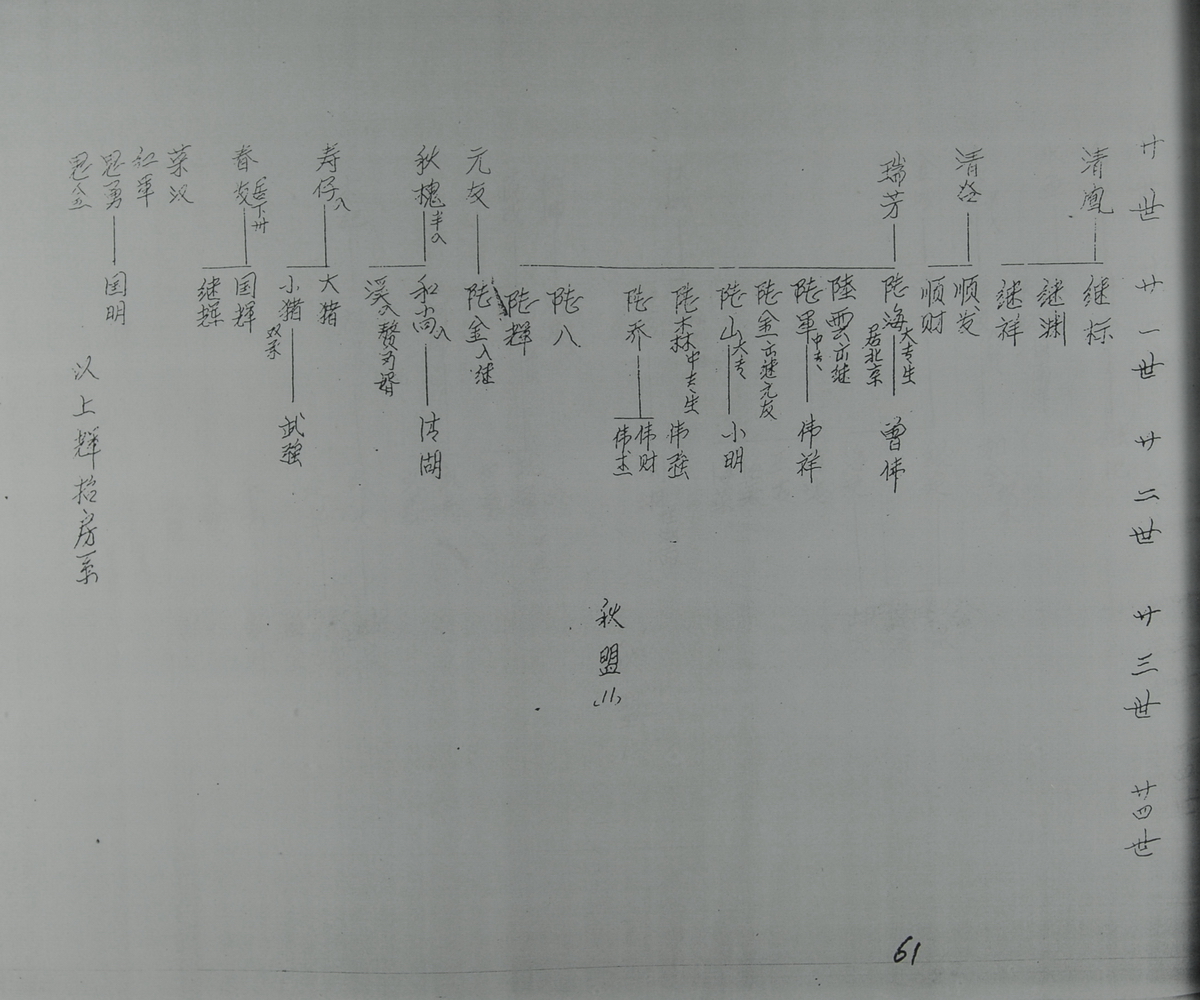 廿世
廿一世
廿二世
廿三世
廿四世
清凰
继标
继渊
继祥
清
顺发
顺财
瑞芳
陆海 大专生 居北京
曾伟
陸雲 出继
陆軍 中专
伟祥
陆金 出继元友
陆山 大专
小明
陆森 中专生
伟强
陆乔
伟财
伟杰
陆八
陆輝
元友
陆金 入继
秋槐
和尚 入
清湖
溪 入赘为婿
寿仔 入
大猪
小猪 双禾
武强
春友 下卅
国辉
继辉
荣汉
红军
思勇
国明
思金
以上輝招房系
秋盟
61